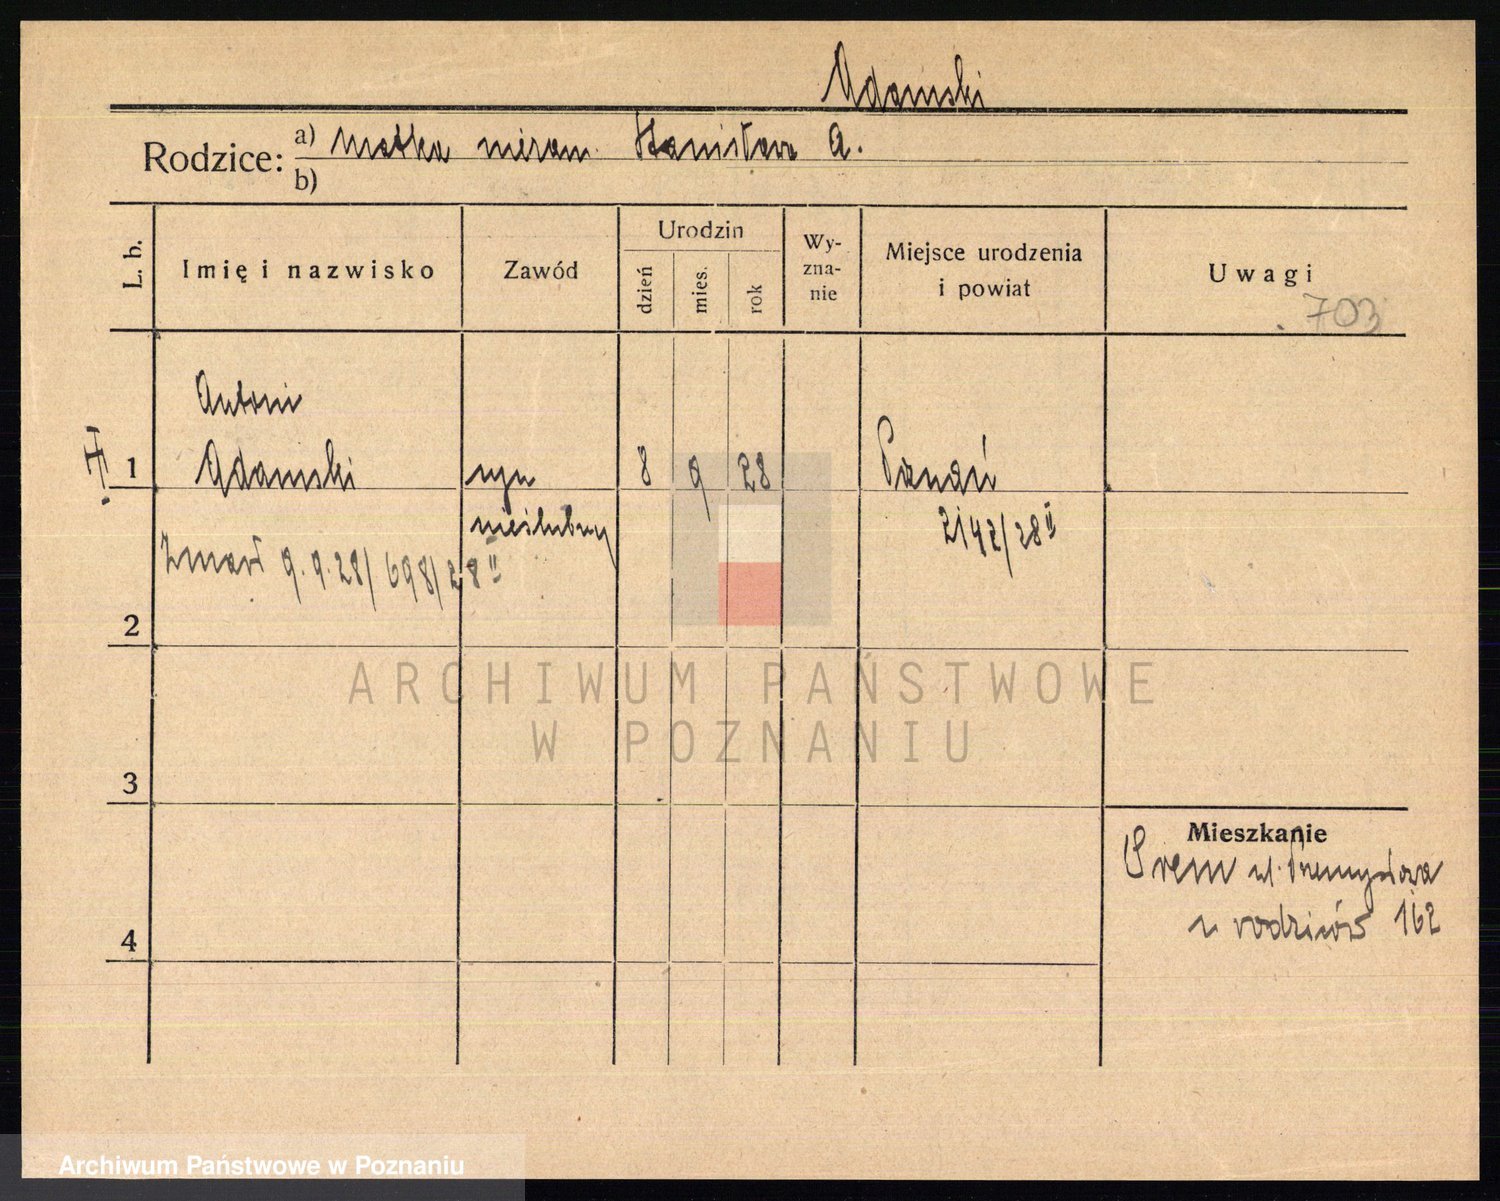 Adamski
Rodzice: a) Matka niezam. Stanisława A.
b)
L. b.
Imię i nazwisko
Zawód
Urodzin
dzień
mies.
rok
Wy-
zna-
nie
Miejsce urodzenia
i powiat
Uwagi
703
Antoni
1 Adamski syn 8 9 28 Poznań
nieślubny 2142/28 II
Zmarł 9.9.28/698/28 II
2
ARCHIWUM PAŃSTWOWE
W POZNANIU
3
Mieszkanie
Śrem ul. Przemysłowa
u rodziców 162
4
Archiwum Państwowe w Poznaniu